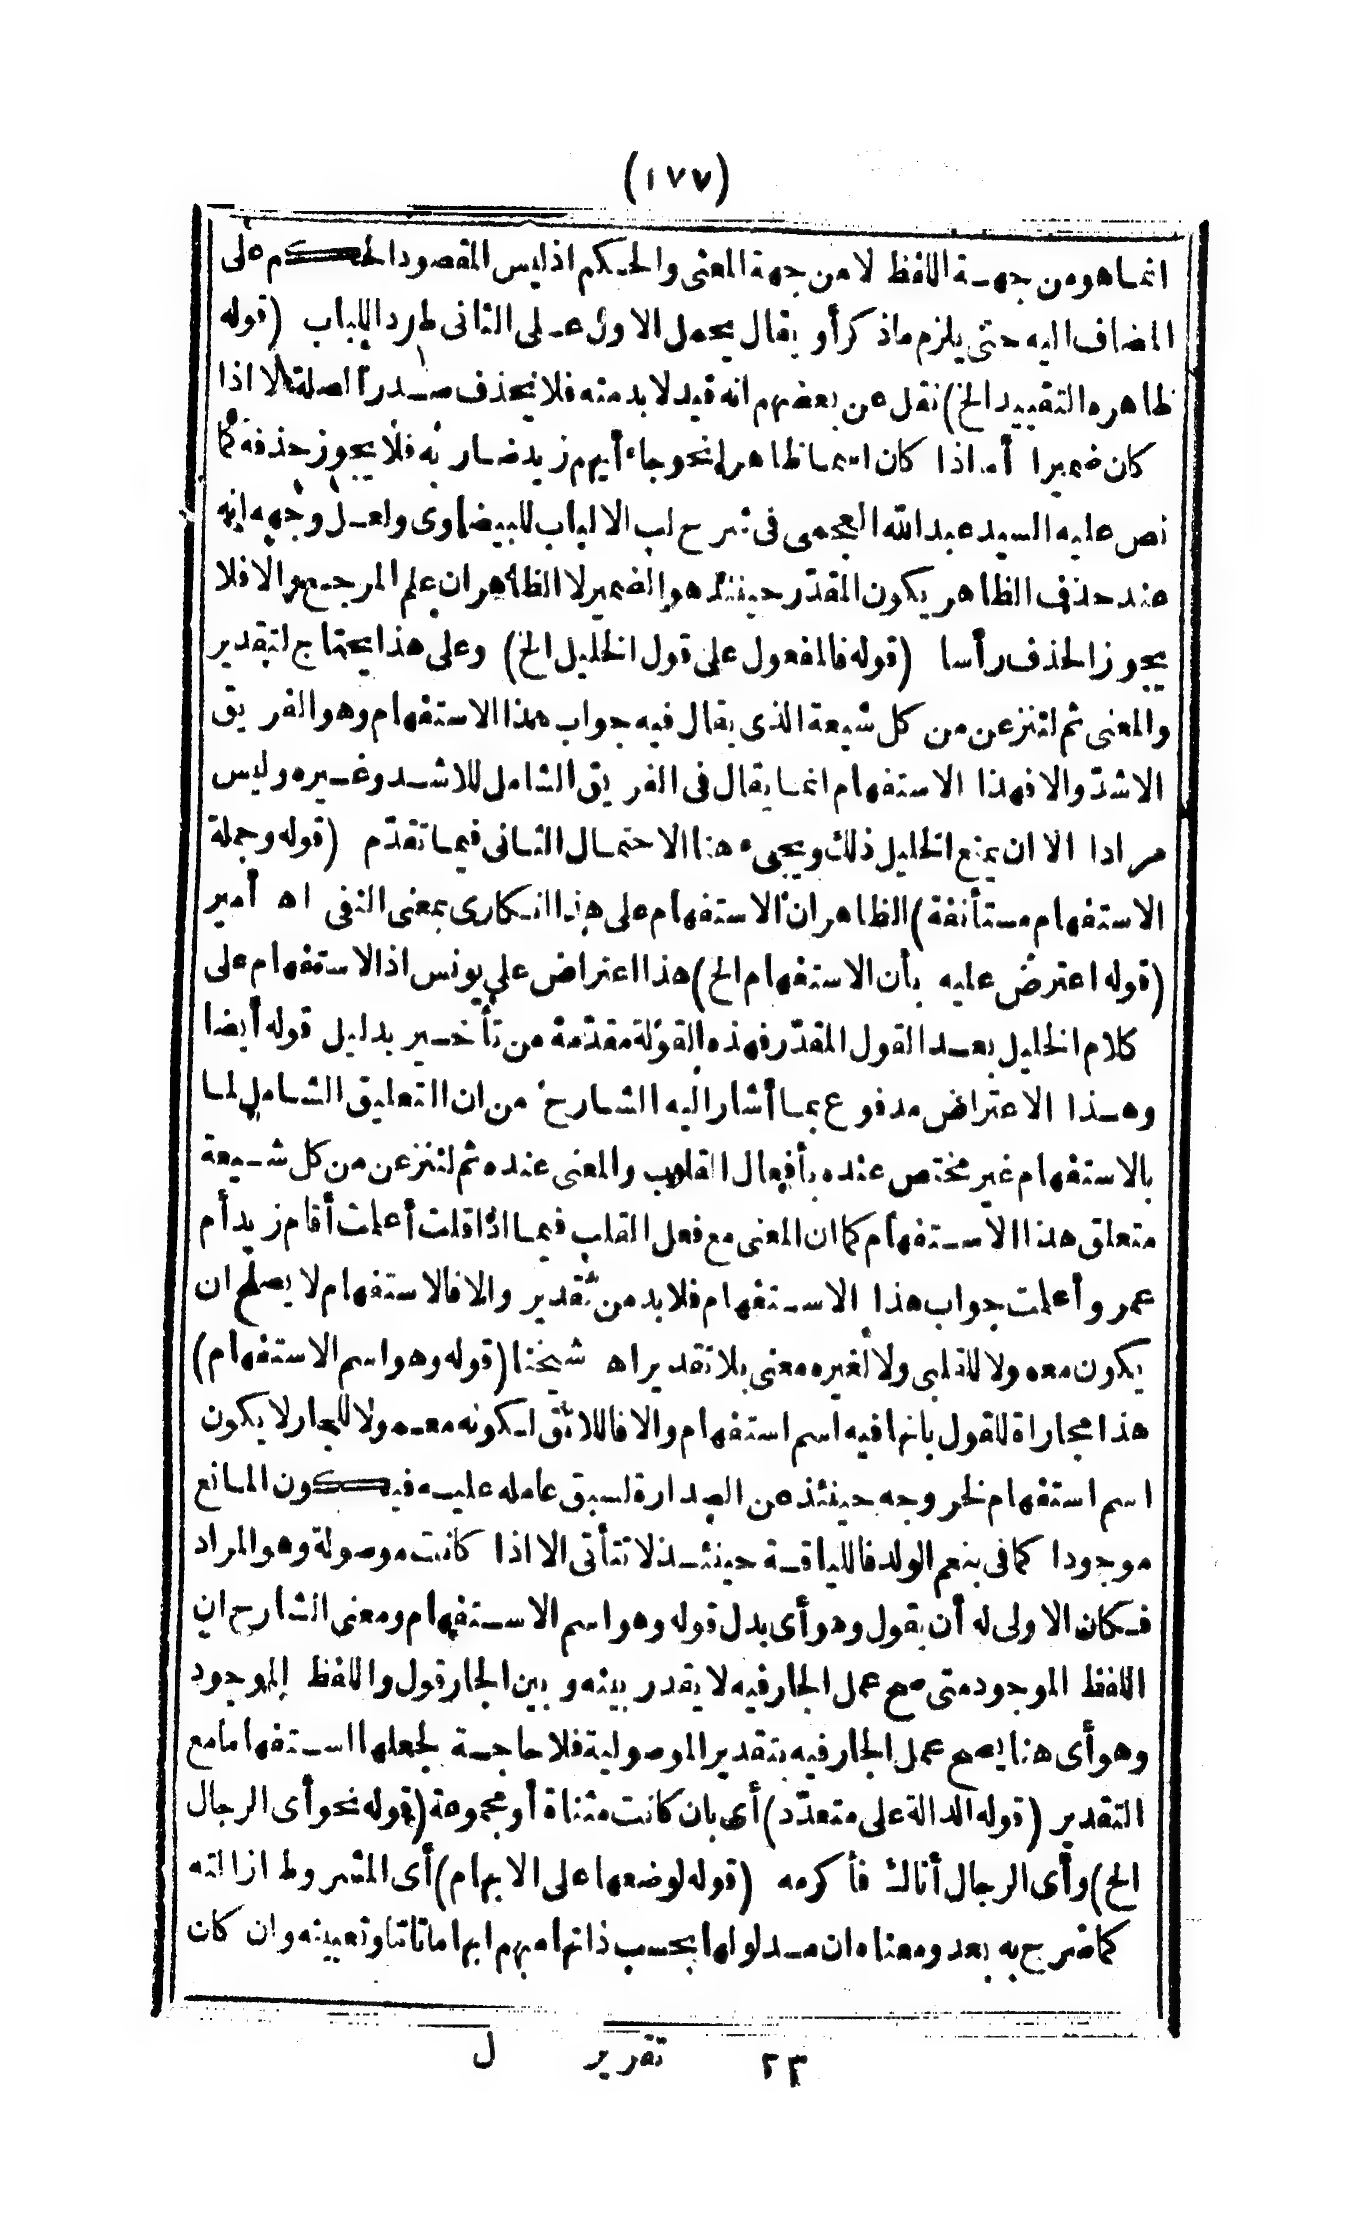 (١٧٧)
انما هو من جهة اللفظ لا من جهة المعنى والحكم اذ ليس المقصود الحكم على
المضاف اليه حتى يلزم ما ذكر أو يقال يحمل الاول على الثانى طرد اللباب (قوله
ظاهره التقييد الخ) نقل عن بعضهم انه قيد لا بد منه فلا يحذف صدر الصلة الا اذا
كان ضميرا أما اذا كان اسما ظاهرا نحو جاء أيهم زيد ضاربه فلا يجوز حذفه كما
نص عليه السيد عبد الله العجمى فى شرح لب الالباب للبيضاوى ولعل وجهه انه
عند حذف الظاهر يكون المقدّر حينئذ هو الضمير لا الظاهر ان علم المرجع والا فلا
يجوز الحذف رأسا (قوله فالمفعول على قول الخليل الخ) وعلى هذا يحتاج لتقدير
والمعنى ثم لننزعن من كل شيعة الذى يقال فيه جواب هذا الاستفهام وهو الفريق
الاشدّ والا فهذا الاستفهام انما يقال فى الفريق الشامل للاشد وغيره وليس
مرادا الا ان يمنع الخليل ذلك ويجىء هنا الاحتمال الثانى فيما تقدّم (قوله وجملة
الاستفهام مستأنفة) الظاهر ان الاستفهام على هذا انكارى بمعنى النفى اه أمير
(قوله اعترض عليه بأن الاستفهام الخ) هذا اعتراض على يونس اذ الاستفهام على
كلام الخليل بعد القول المقدّر فهذه القولة مقدّمة من تأخير بدليل قوله أيضا
وهذا الاعتراض مدفوع بما أشار اليه الشارح من ان التعليق الشامل لما
بالاستفهام غير مختص عنده بأفعال القلوب والمعنى عنده ثم لننزعن من كل شيعة
متعلق هذا الاستفهام كما ان المعنى مع فعل القلب فيما اذا قلت أعلمت أقام زيد أم
عمرو أعلمت جواب هذا الاستفهام فلا بد من تقدير والا فالاستفهام لا يصلح ان
يكون معمولا للقلبى ولا لغيره معنى بلا تقدير اه شيخنا (قوله وهو اسم الاستفهام)
هذا مجاراة للقول بانها فيه اسم استفهام والا فاللائق لكونه معمولا للجار لا يكون
اسم استفهام لخروجه حينئذ عن الصدارة لسبق عامله عليه فيكون المانع
موجودا كما فى بنعم الولد فاللياقة حينئذ لا تتأتى الا اذا كانت موصولة وهو المراد
فكان الاولى له أن يقول وهو أى بدل قوله وهو اسم الاستفهام ومعنى الشارح ان
اللفظ الموجود متى صح عمل الجار فيه لا يقدر بينه وبين الجار قول واللفظ الموجود
وهو أى هنا يصح عمل الجار فيه بتقدير الموصولية فلا حاجة لجعلها استفهاما مع
التقدير (قوله الدالة على متعدّد) أى بان كانت مثناة أو مجموعة (قوله نحو أى الرجال
الخ) وأى الرجال أتاك فأكرمه (قوله لوضعها على الابهام) أى المشروط ازالته
كما صرح به بعد ومعناه ان مدلولها بحسب ذاتها مبهم ابهاما تاما وتعيينه وان كان
٢٣ تقرير ل